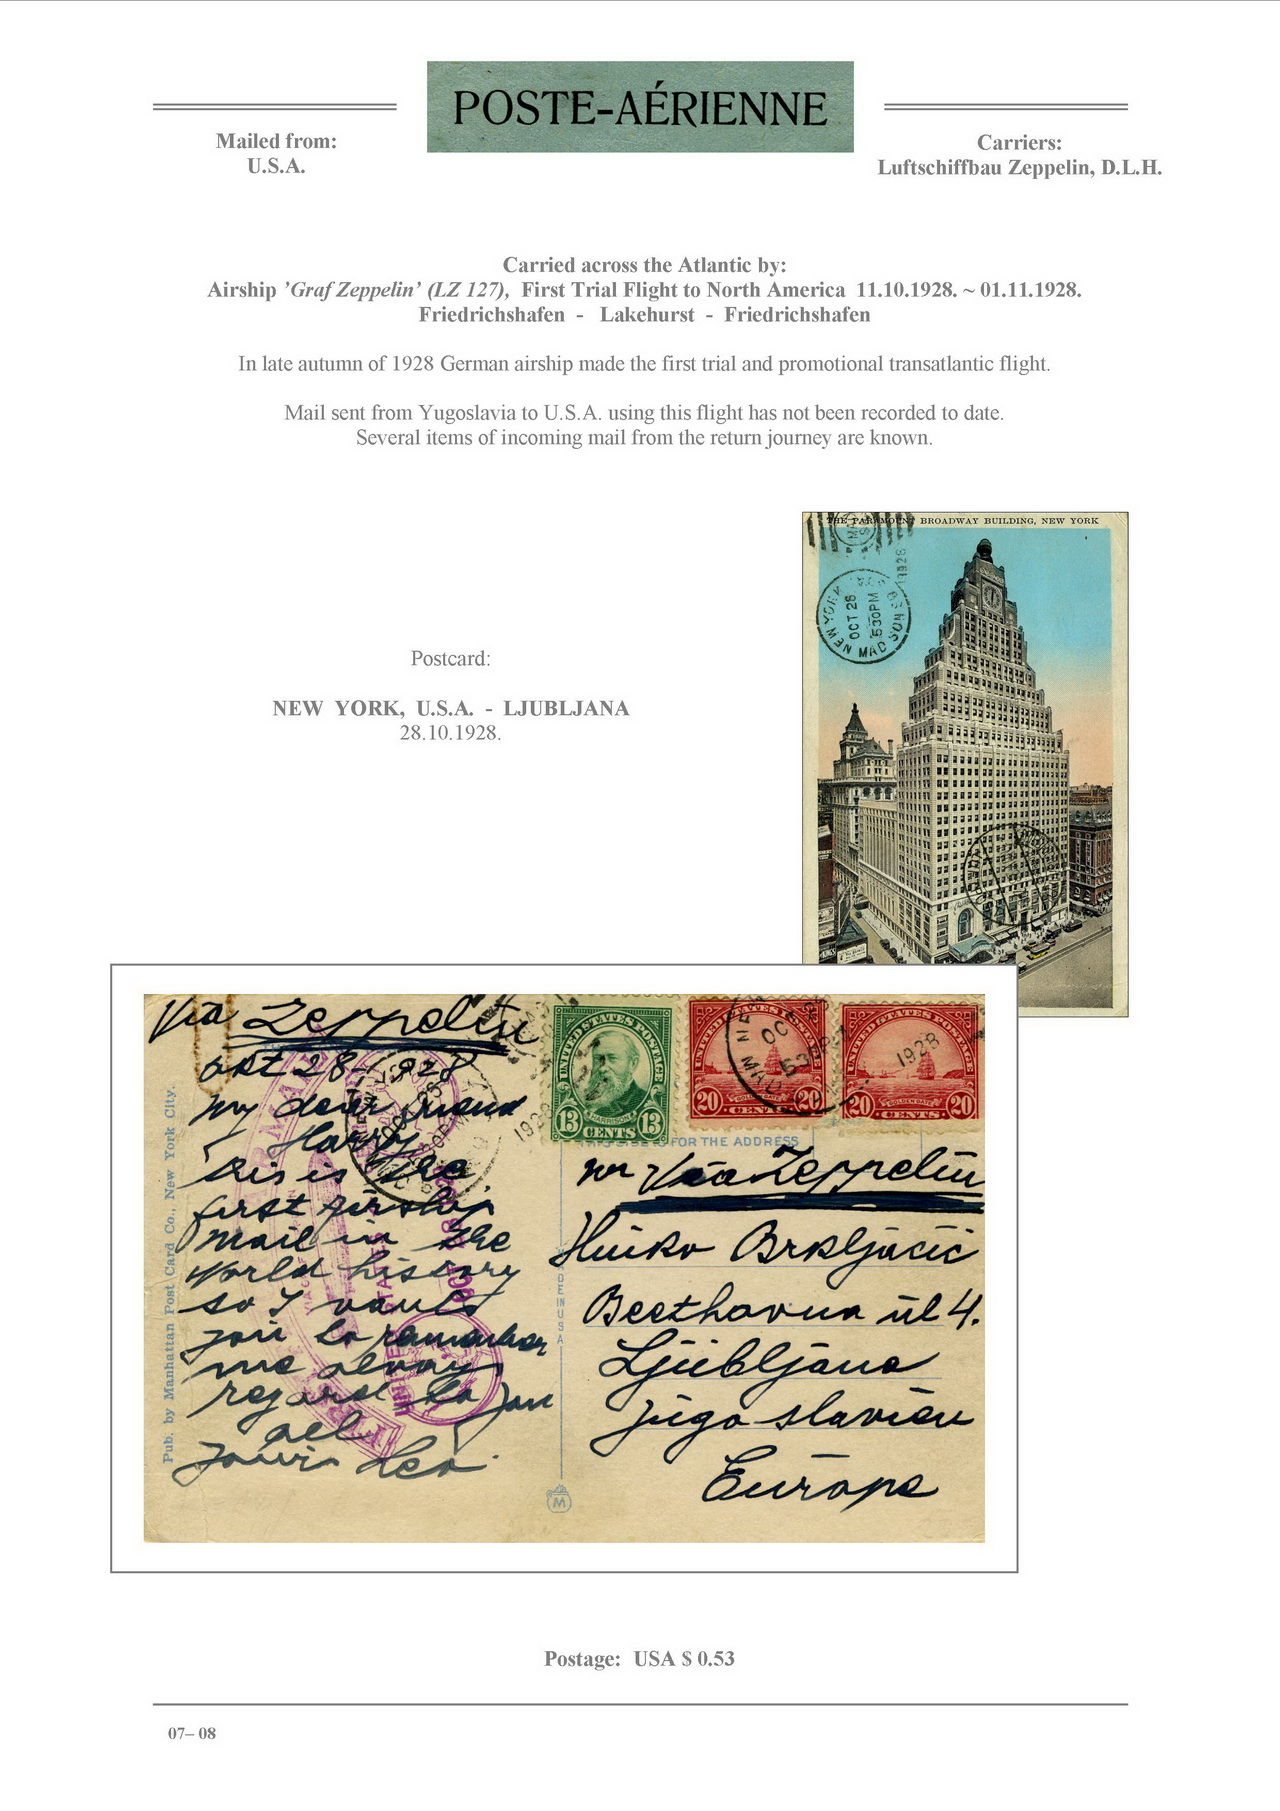 POSTE-AÉRIENNE
Mailed from:
U.S.A.
Carriers:
Luftschiffbau Zeppelin, D.L.H.
Carried across the Atlantic by:
Airship ’Graf Zeppelin’ (LZ 127), First Trial Flight to North America 11.10.1928. ~ 01.11.1928.
Friedrichshafen - Lakehurst - Friedrichshafen
In late autumn of 1928 German airship made the first trial and promotional transatlantic flight.
Mail sent from Yugoslavia to U.S.A. using this flight has not been recorded to date.
Several items of incoming mail from the return journey are known.
THE PARAMOUNT BROADWAY BUILDING, NEW YORK
NEW YORK
OCT 28
530PM
1928
Postcard:
NEW YORK, U.S.A. - LJUBLJANA
28.10.1928.
Via Zeppelin
okt 28-1928
my dear friend
Harry
this is the
first airship
mail in the
World history
so I vants
you to remember
me alvays
regard to you
all
Yours Leo
Pub. by Manhattan Post Card Co., New York City.
UNITED STATES POSTAGE
HARRISON
13 CENTS 13
UNITED STATES POSTAGE
GOLDEN GATE
20 CENTS 20
UNITED STATES POSTAGE
GOLDEN GATE
20 CENTS 20
1928
1928
FOR THE ADDRESS
MADE IN USA
M
Via Zeppelin
Hinko Brkljačić
Beethovna ul 4.
Ljubljana
Jugoslavien
Europe
Postage: USA $ 0.53
07– 08